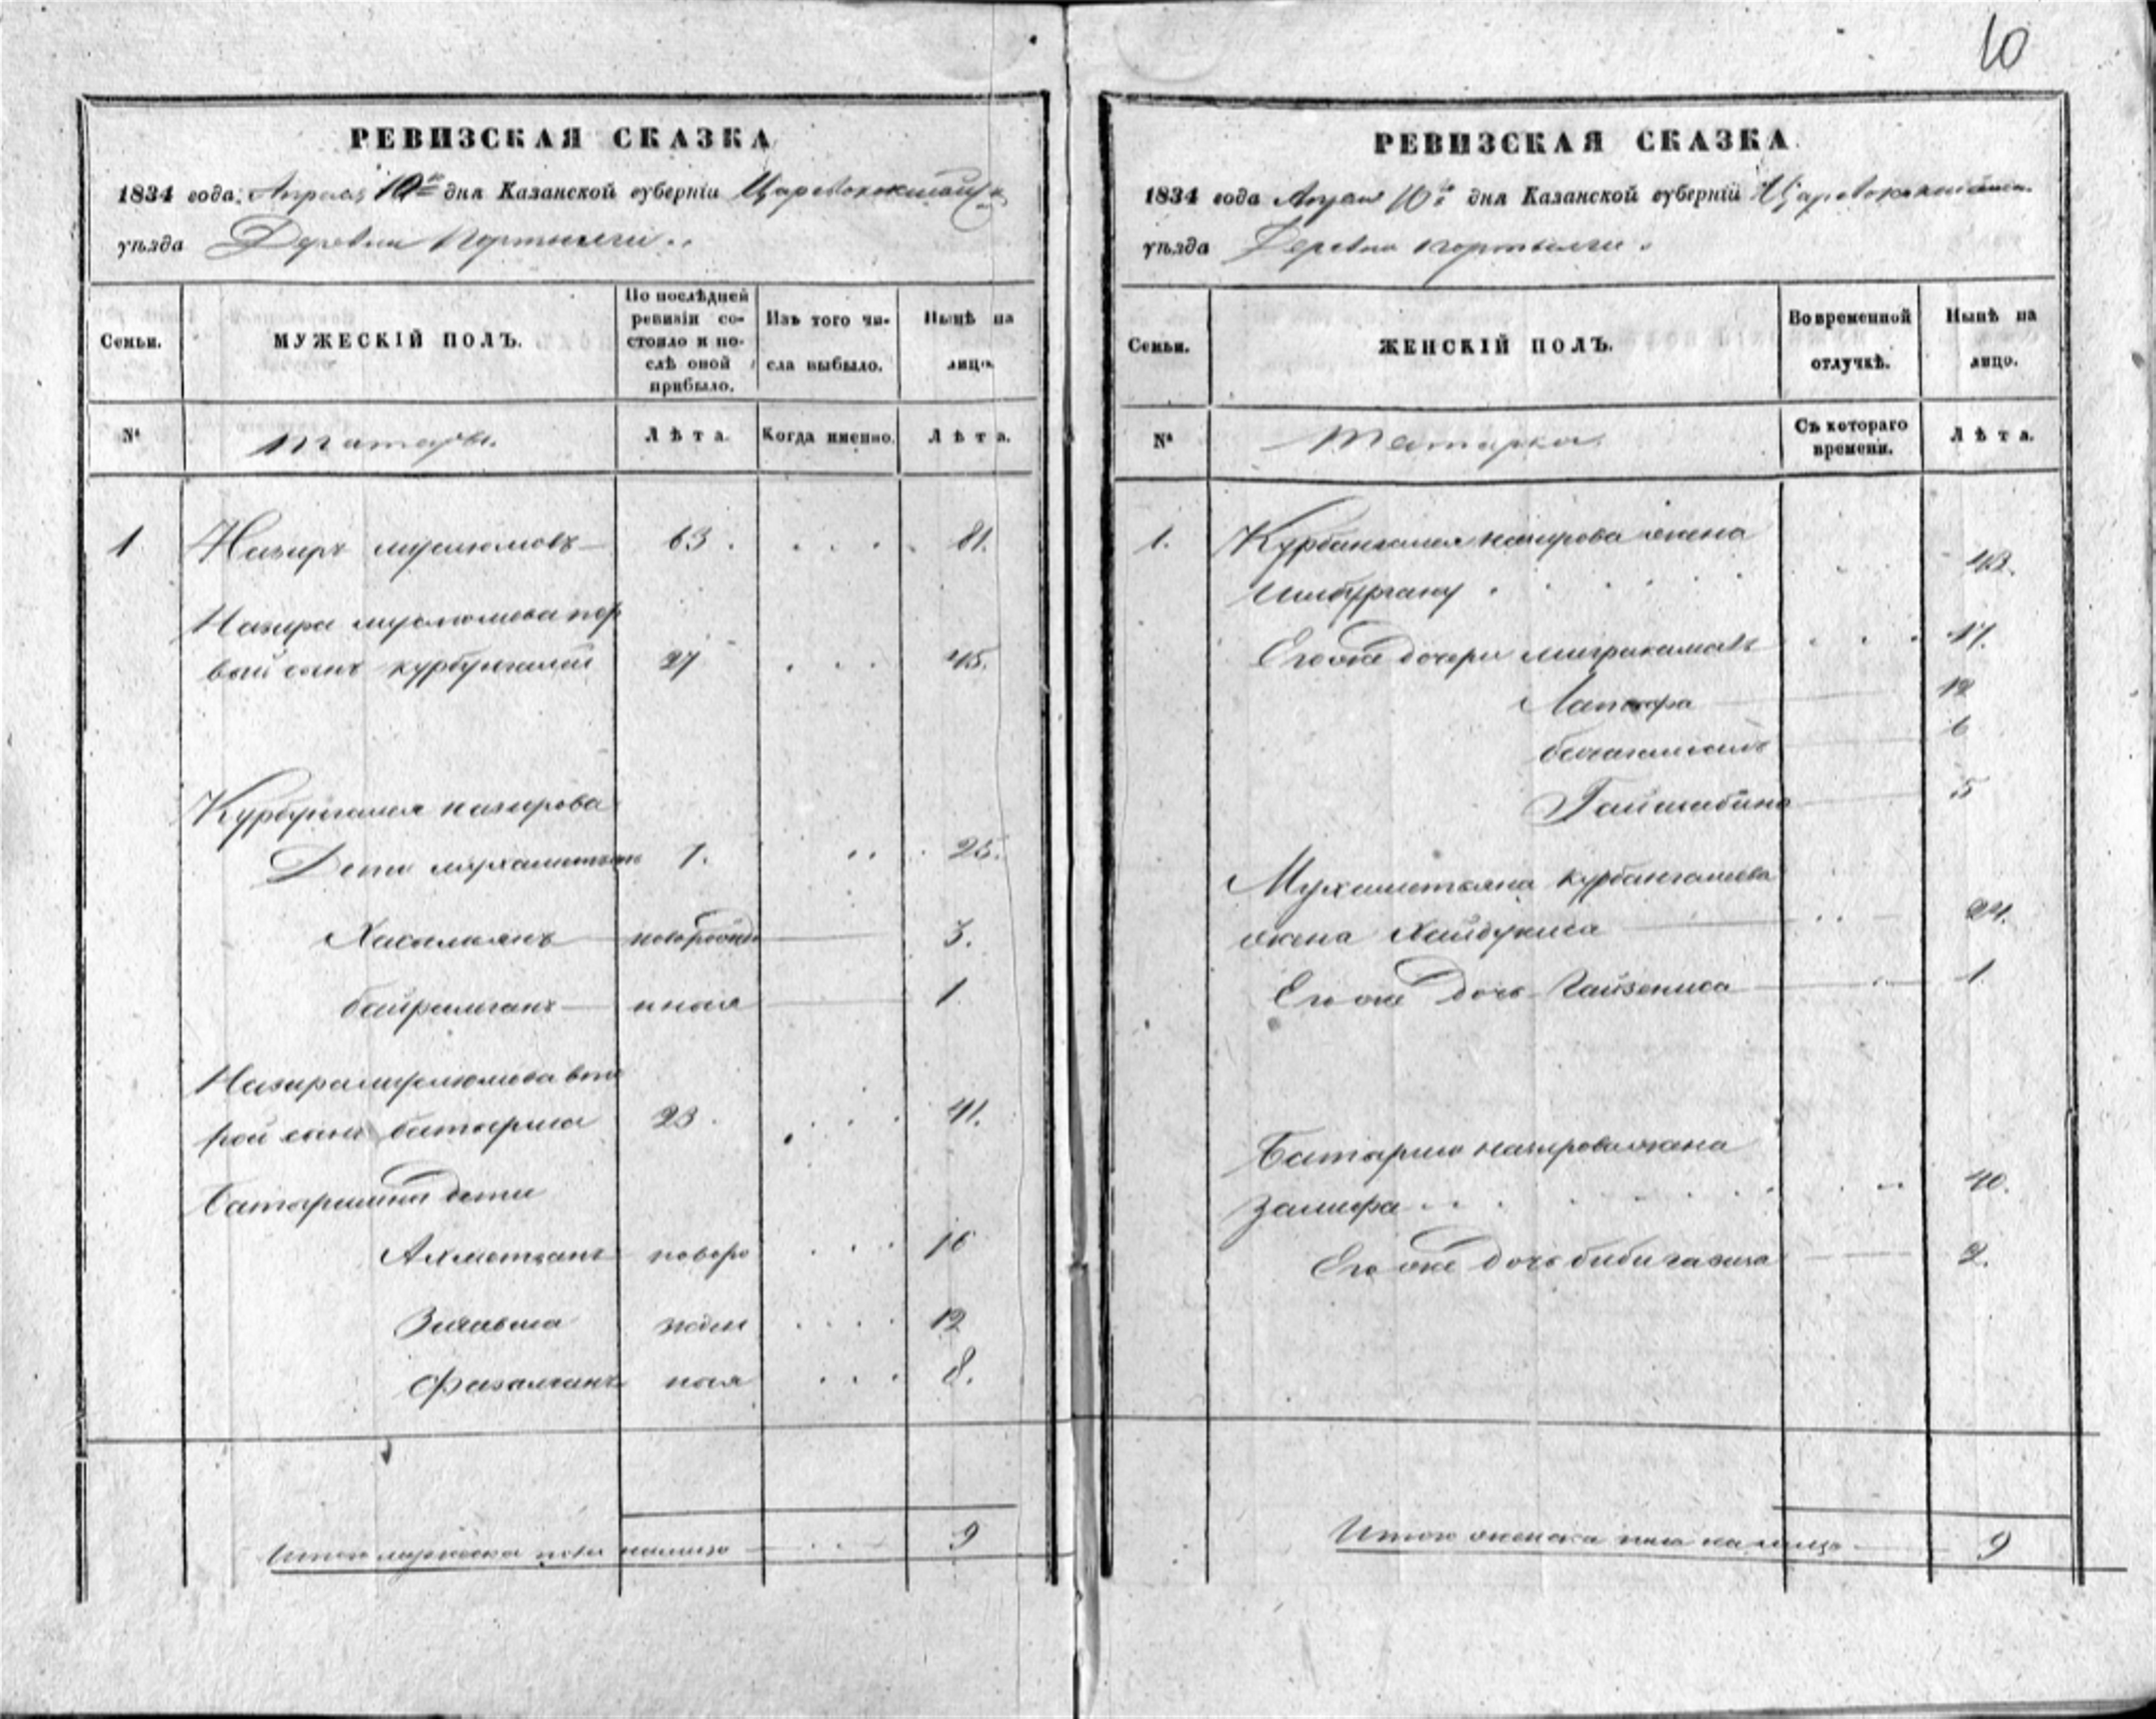 10
РЕВИЗСКАЯ СКАЗКА
1834 года Апреля 10го дня Казанской губерніи Царевококшайска
уѣзда Деревни Портянги
Семьи.
МУЖЕСКІЙ ПОЛЪ.
По послѣдней ревизіи состояло и послѣ оной прибыло.
Изъ того числа выбыло.
Нынѣ на лицо.
№
татары.
Лѣта.
Когда именно.
Лѣта.
1 Назиръ муслюмовъ 63. 81.
Назира муслюмова пер
вый сынъ курбунгалий 27 45.
Курбунгалея назирова
Дети мухаметьянъ 1. 25.
Хасамьянъ новорожде 3.
байрамганъ нная 1
Назира муслюмова вто
рой сынъ батырша 23. 41.
батыршины дети
Ахметзянъ новоро 16
жден 12
Фазалганъ ная 8.
Итого мужеска пола налицо 9
РЕВИЗСКАЯ СКАЗКА
1834 года Апреля 10го дня Казанской губерніи Царевококшайска
уѣзда Деревни портянги
Семьи.
ЖЕНСКІЙ ПОЛЪ.
Во временной отлучкѣ.
Нынѣ на лицо.
№
татарки
Съ котораго времени.
Лѣта.
1. Курбангалея назирова жена
43.
Его же дочери 17.
12
6
5
Мухаметьяна курбангалеева
жена 24.
Его же дочь 1
Батырши назирова жена
замифа 40.
Его же дочь биби 2.
Итого женска пола на лицо 9